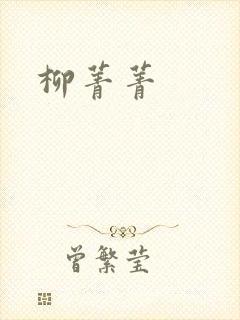 柳菁菁
曾繁莹